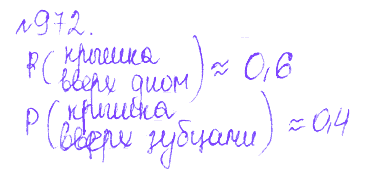 №972.
P(крышка
вверх дном) ≈ 0,6
P(крышка
вверх зубцами) ≈ 0,4